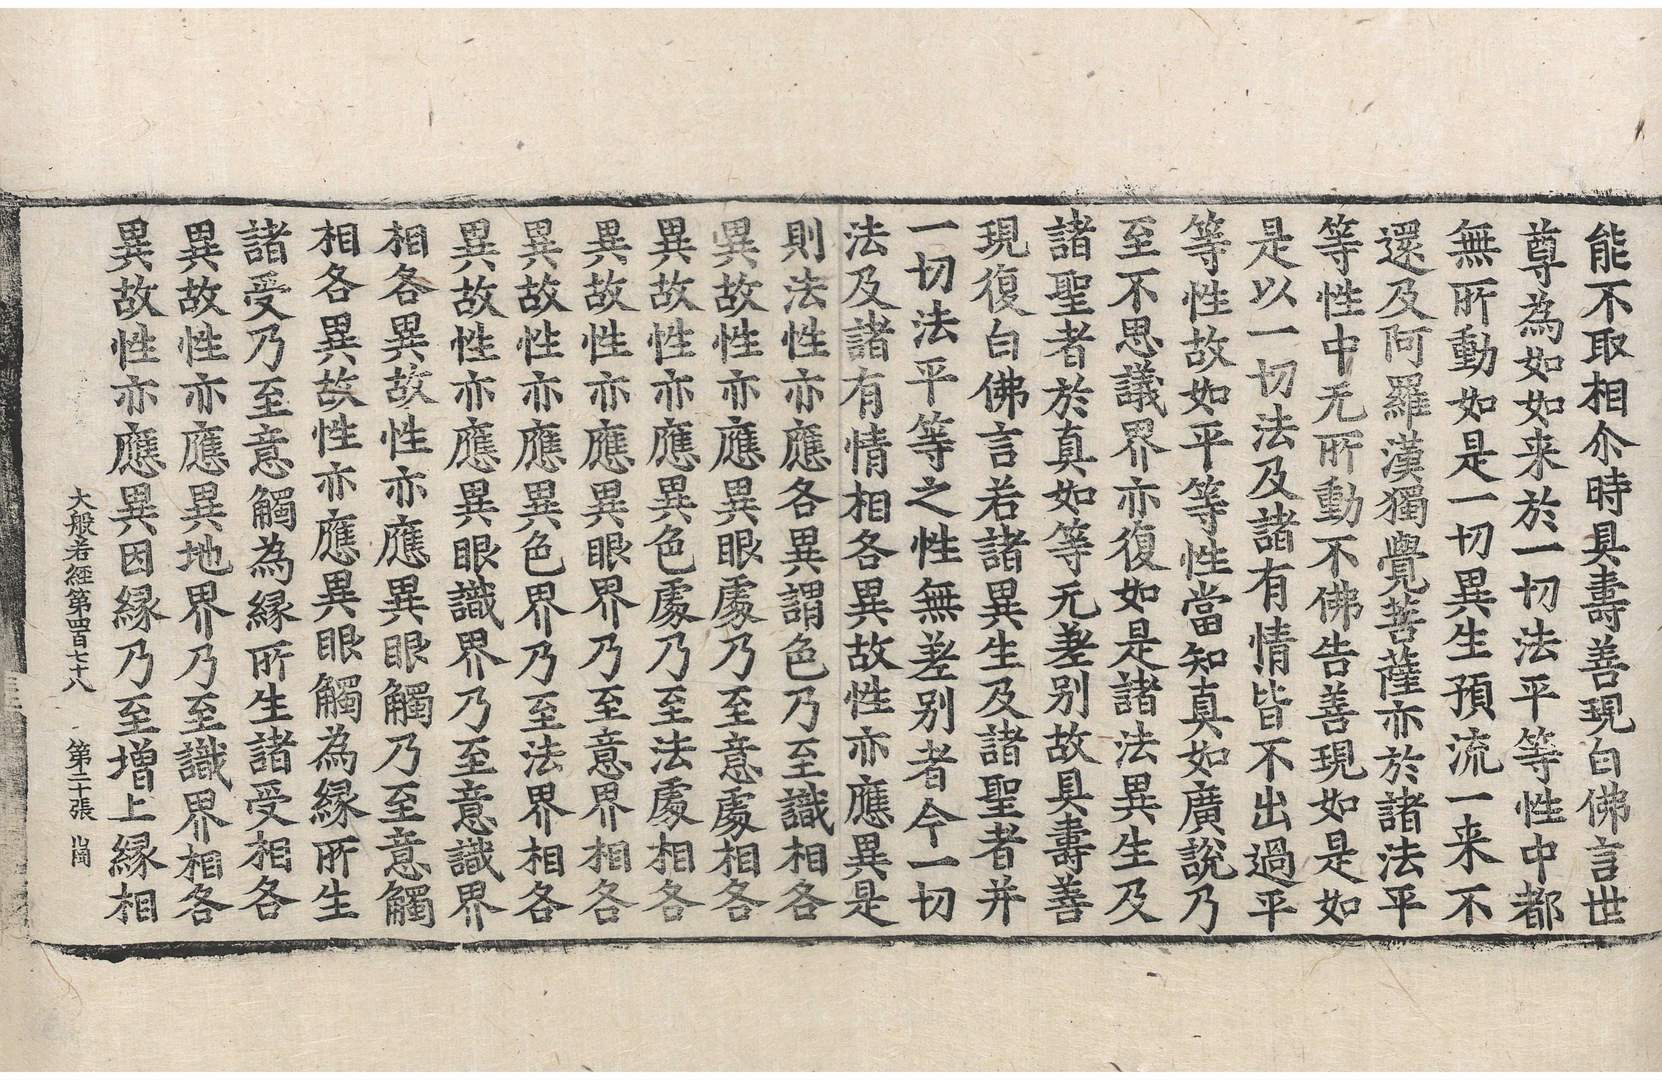 能不取相尒時具壽善現白佛言世
尊為如如来於一切法平等性中都
無所動如是一切異生預流一来不
還及阿羅漢獨覺菩薩亦於諸法平
等性中无所動不佛告善現如是如
是以一切法及諸有情皆不出過平
等性故如平等等性當知真如廣說乃
至不思議界亦復如是諸法異生及
諸聖者於真如等无差别故具壽善
現復白佛言若諸異生及諸聖者并
一切法平等之性無差别者今一切
法及諸有情相各異故性亦應異是
則法性亦應各異謂色乃至識相各
異故性亦應異眼處乃至意處相各
異故性亦應異色處乃至法處相各
異故性亦應異眼界乃至意界相各
異故性亦應異色界乃至法界相各
異故性亦應異眼識界乃至意識界
相各異故性亦應異眼觸乃至意觸
相各異故性亦應異眼觸為縁所生
諸受乃至意觸為縁所生諸受相各
異故性亦應異地界乃至識界相各
異故性亦應異因縁乃至增上縁相
大般若經第四百七十八 第二十張 岡